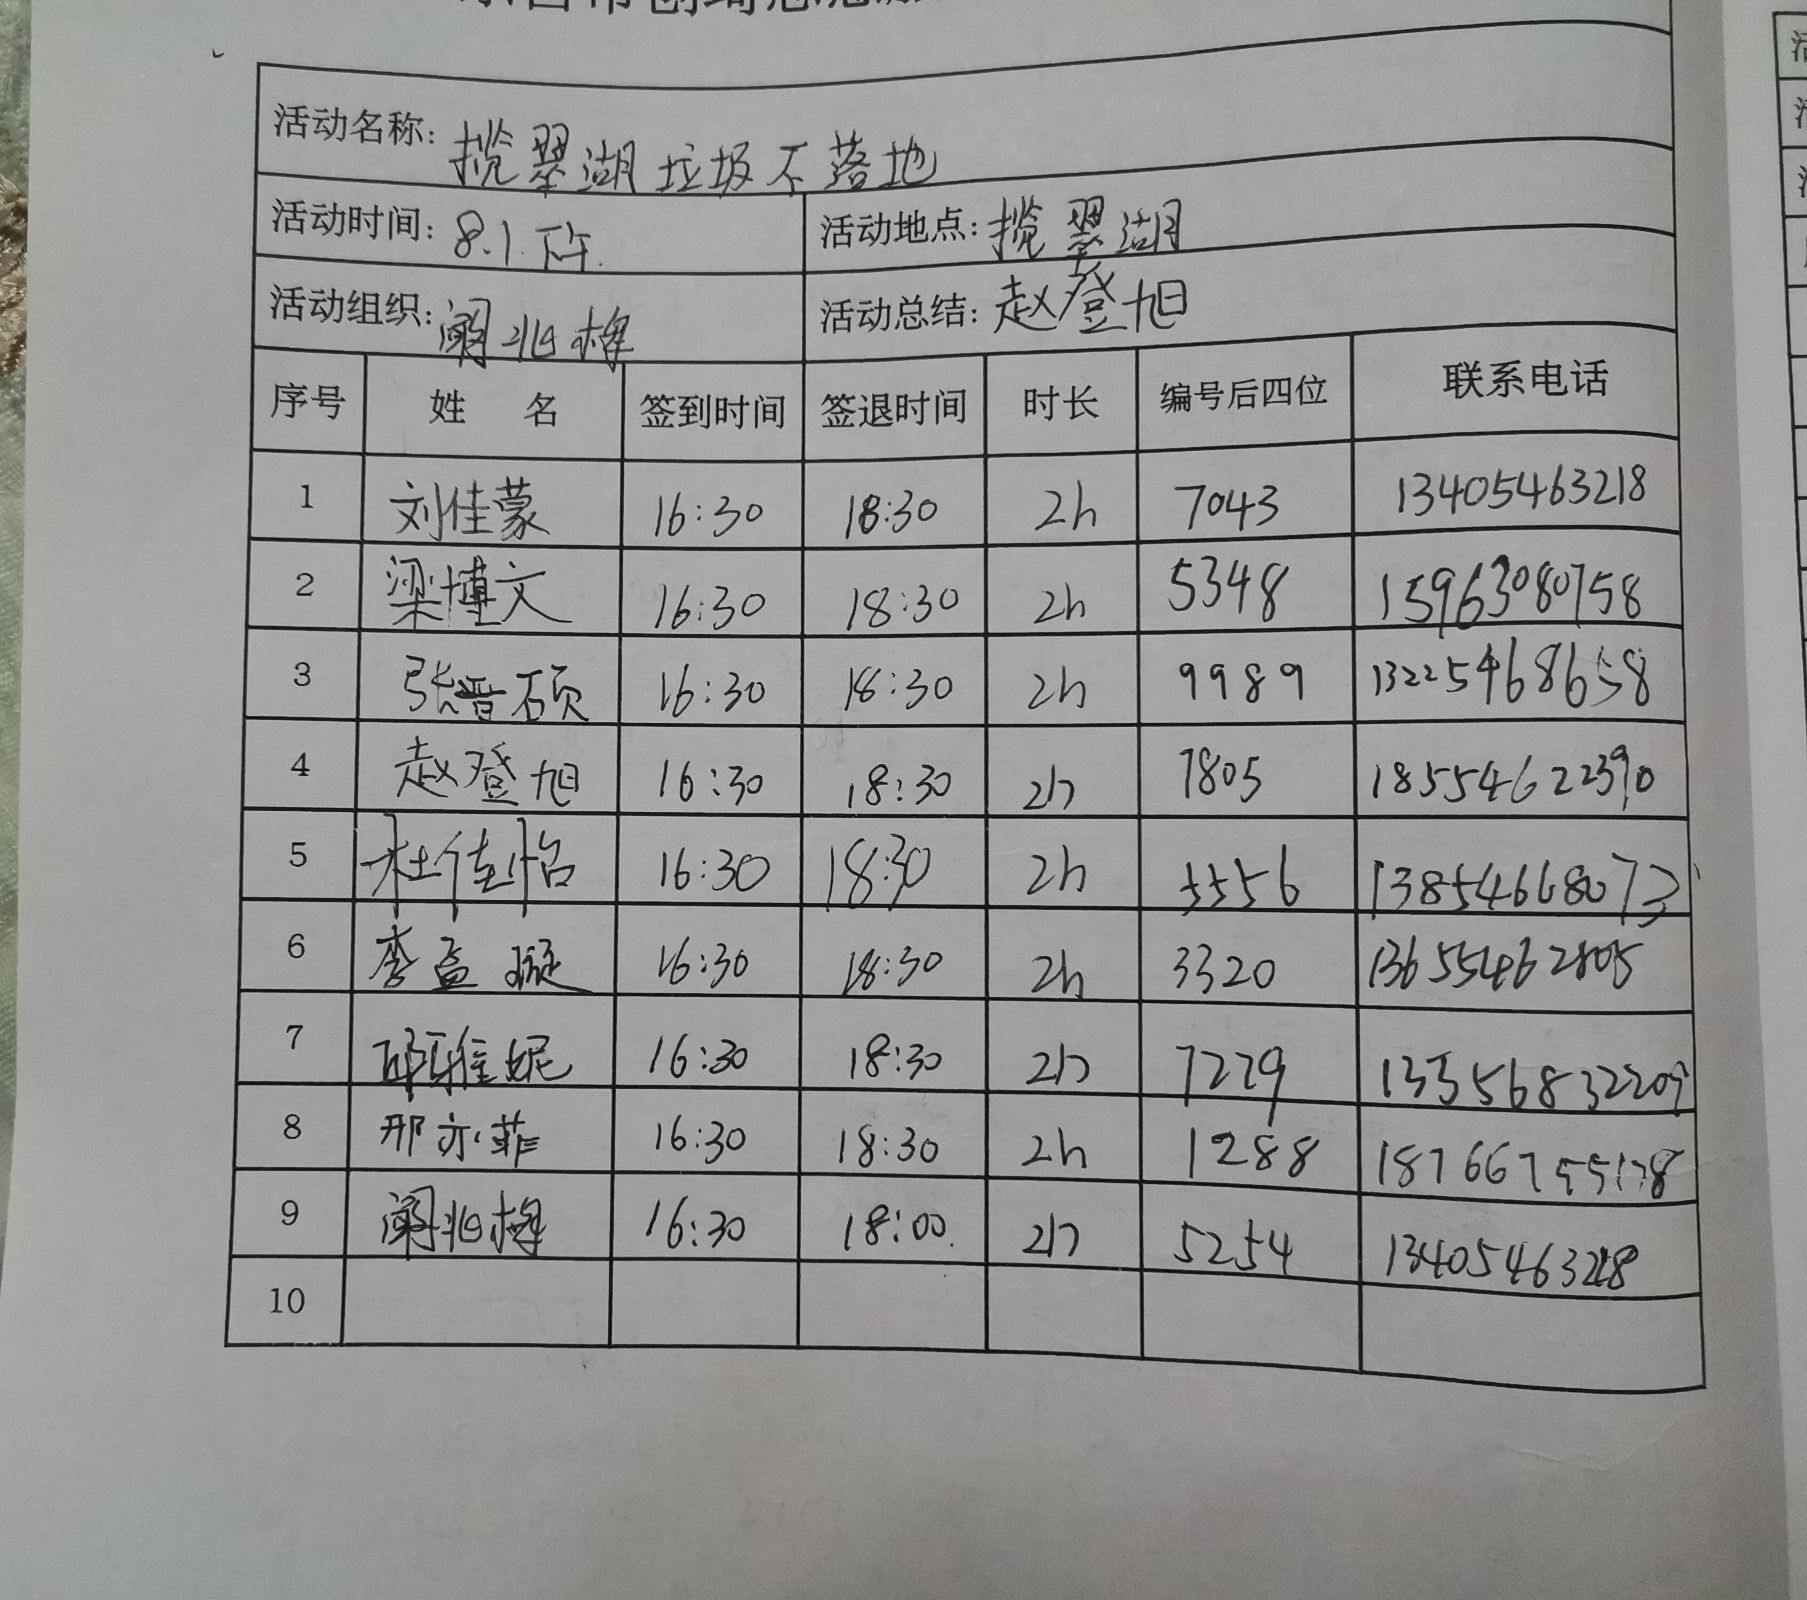 活动名称: 揽翠湖垃圾不落地
活动时间: 8.1.下午. 活动地点: 揽翠湖
活动组织: 阚兆梅 活动总结: 赵登旭
序号 姓 名 签到时间 签退时间 时长 编号后四位 联系电话
1 刘佳蒙 16:30 18:30 2h 7043 13405463218
2 梁博文 16:30 18:30 2h 5348 15963080758
3 张晋硕 16:30 18:30 2h 9989 13225468658
4 赵登旭 16:30 18:30 2h 7805 18554622390
5 杜佳怡 16:30 18:30 2h 5556 13854668073
6 李孟璇 16:30 18:30 2h 3320
7 邵雅妮 16:30 18:30 2h 7229 13356832209
8 邢亦菲 16:30 18:30 2h 1288
9 阚兆梅 16:30 18:00. 2h 5254 13405463218
10